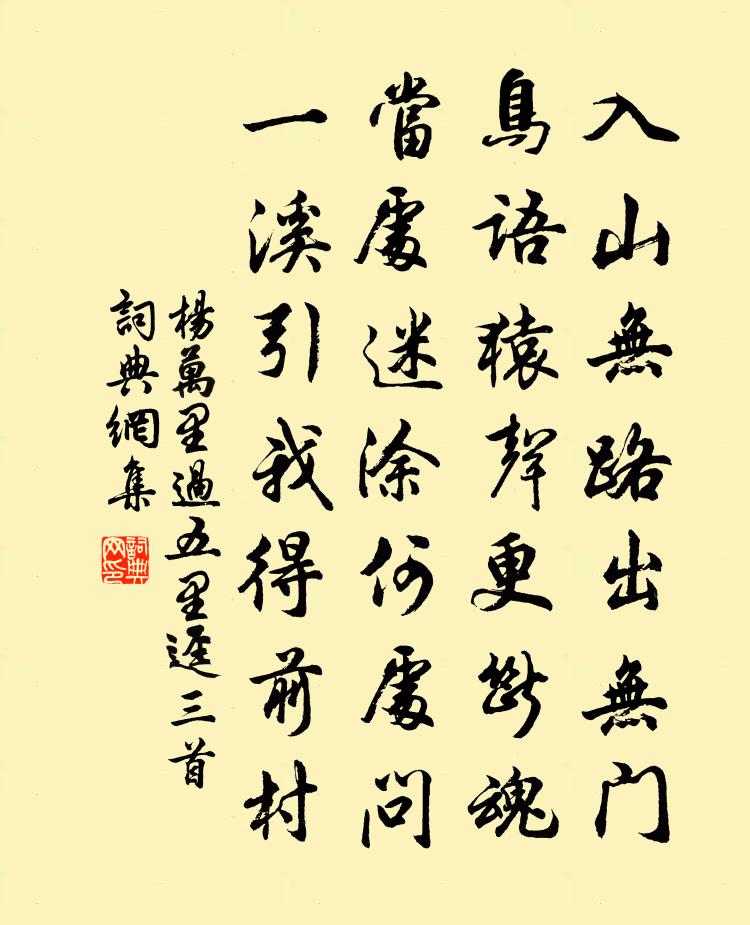 入山無路出無門
鳥語猿聲更斷魂
當處迷涂何處問
一溪引我得前村
楊萬里過五里逕三首
詞典網集
詞典网印